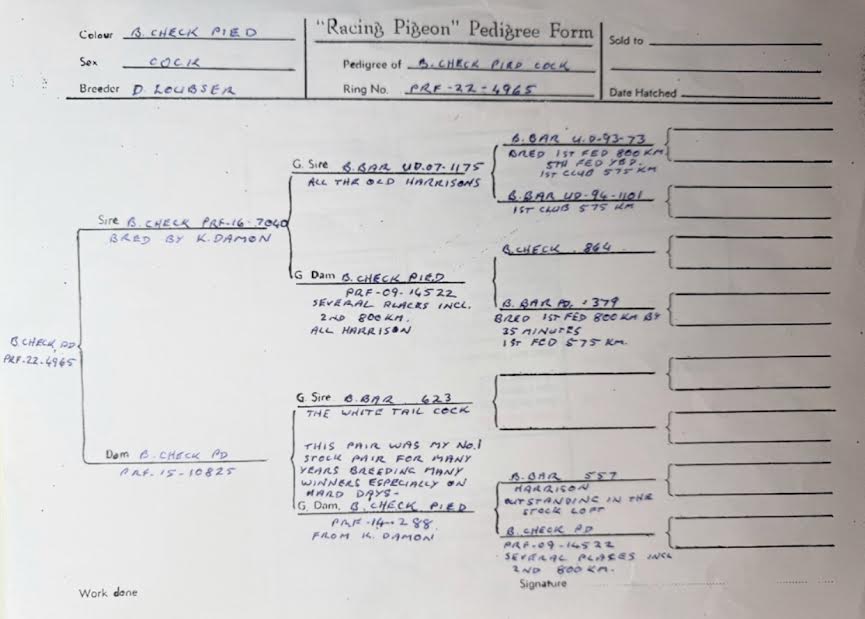 "Racing Pigeon" Pedigree Form
Colour B. CHECK PIED
Sex COCK
Breeder D. LOUBSER
Pedigree of B. CHECK PIED COCK
Ring No. PRF-22-4965
Sold to
Date Hatched
B. CHECK PD
PRF-22-4965
Sire B. CHECK PRF-16-7040
BRED BY K. DAMON
Dam B. CHECK PD
PRF-15-10825
G. Sire B. BAR UD-07-1175
ALL THE OLD HARRISONS
G Dam B. CHECK PIED
PRF-09-14522
SEVERAL PLACES INCL.
2ND 800 KM.
ALL HARRISON
G. Sire B. BAR 623
THE WHITE TAIL COCK
THIS PAIR WAS MY NO.1
STOCK PAIR FOR MANY
YEARS BREEDING MANY
WINNERS ESPECIALLY ON
HARD DAYS-
G. Dam, B. CHECK PIED
PRF-14-288
FROM K. DAMON
B. BAR U.D-93-73
BRED 1ST FED 800 KM.
5TH FED YBD.
1ST CLUB 575 KM
B. BAR UD-94-1101
1ST CLUB 575 KM
B. CHECK 864
B. BAR PD. 379
BRED 1ST FED 800 KM BY
35 MINUTES
1ST FED 575 KM.
B. BAR 557
HARRISON
OUTSTANDING IN THE
STOCK LOFT
B. CHECK PD
PRF-09-14522
SEVERAL PLACES INCL
2ND 800 KM.
Signature
Work done